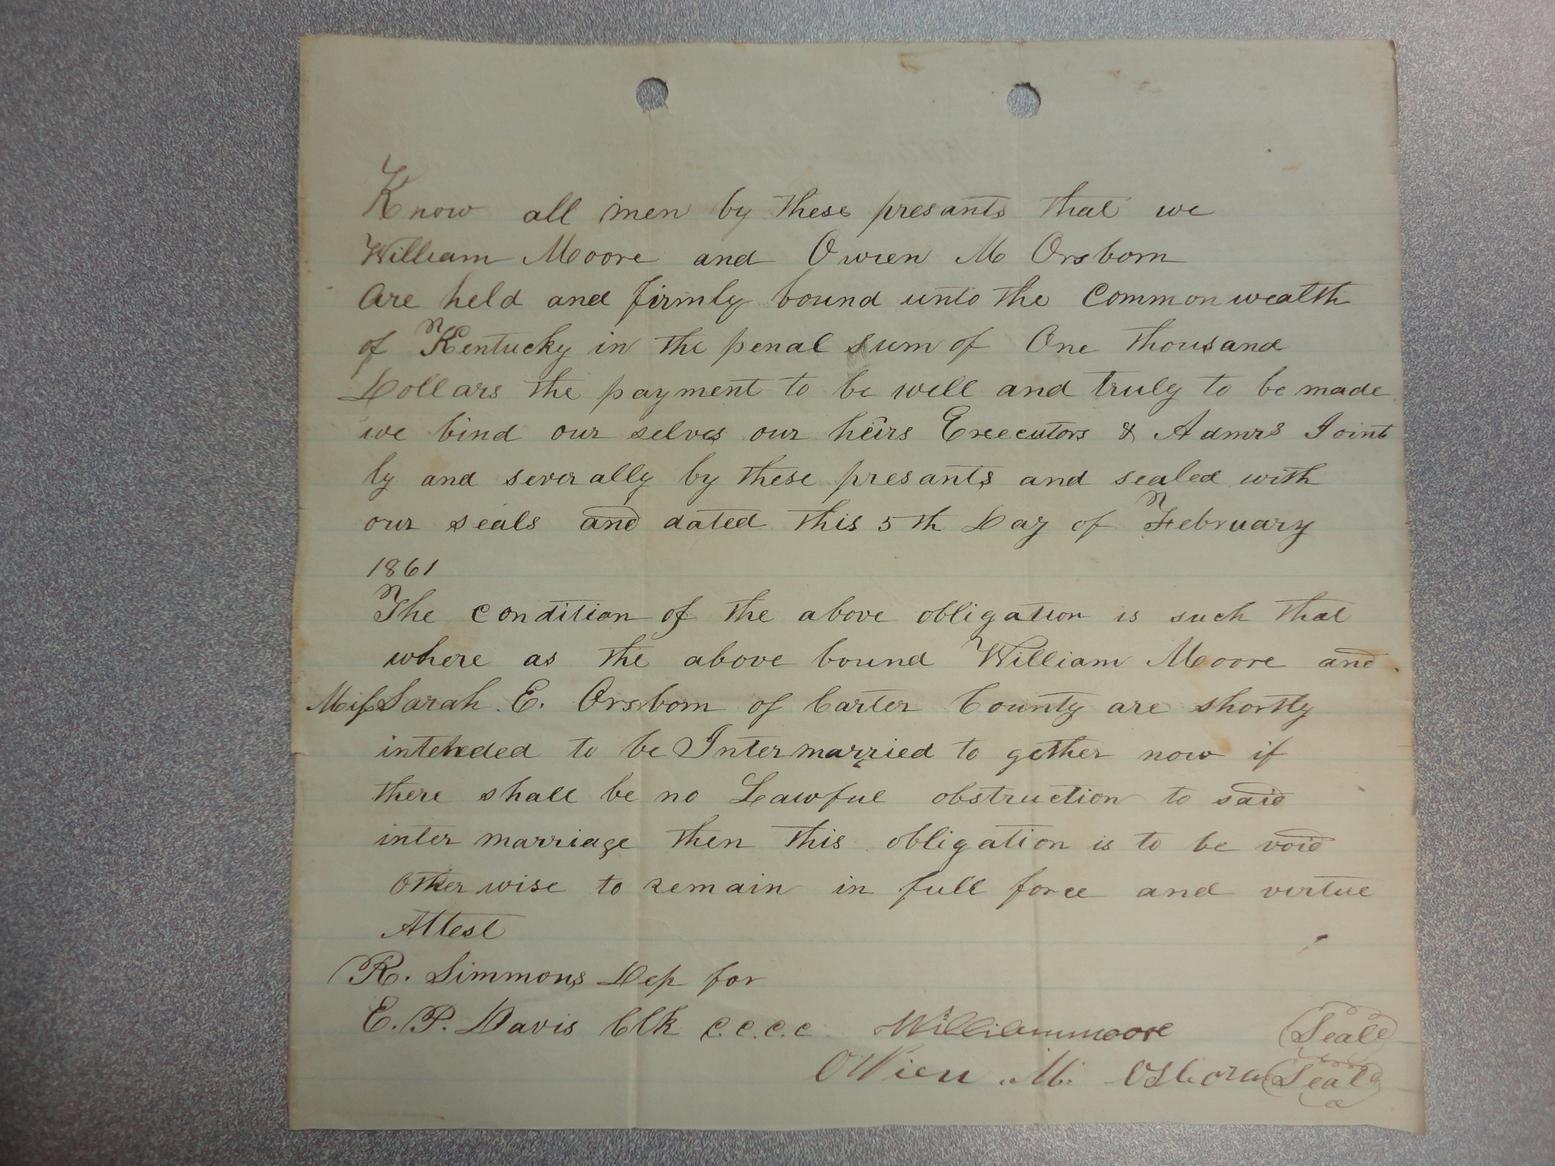 Know all men by these presants that we
William Moore and Owren M Orsborn
Are held and firmly bound unto the Commonwealth
of Kentucky in the penal sum of One thousand
Dollars the payment to be well and truly to be made
we bind our selves our heirs Executors & Admrs Joint
ly and severally by these presants and sealed with
our seals and dated this 5th Day of February
1861
The condition of the above obligation is such that
where as the above bound William Moore and
Miss Sarah E. Orsborn of Carter County are shortly
intended to be Intermarried to gether now if
there shall be no Lawful obstruction to said
inter marriage then this obligation is to be void
Otherwise to remain in full force and virtue
Attest
R. Simmons Dep for
E. P. Davis Clk C.C.C.C William moore Seal
Owien M. Osborn Seal